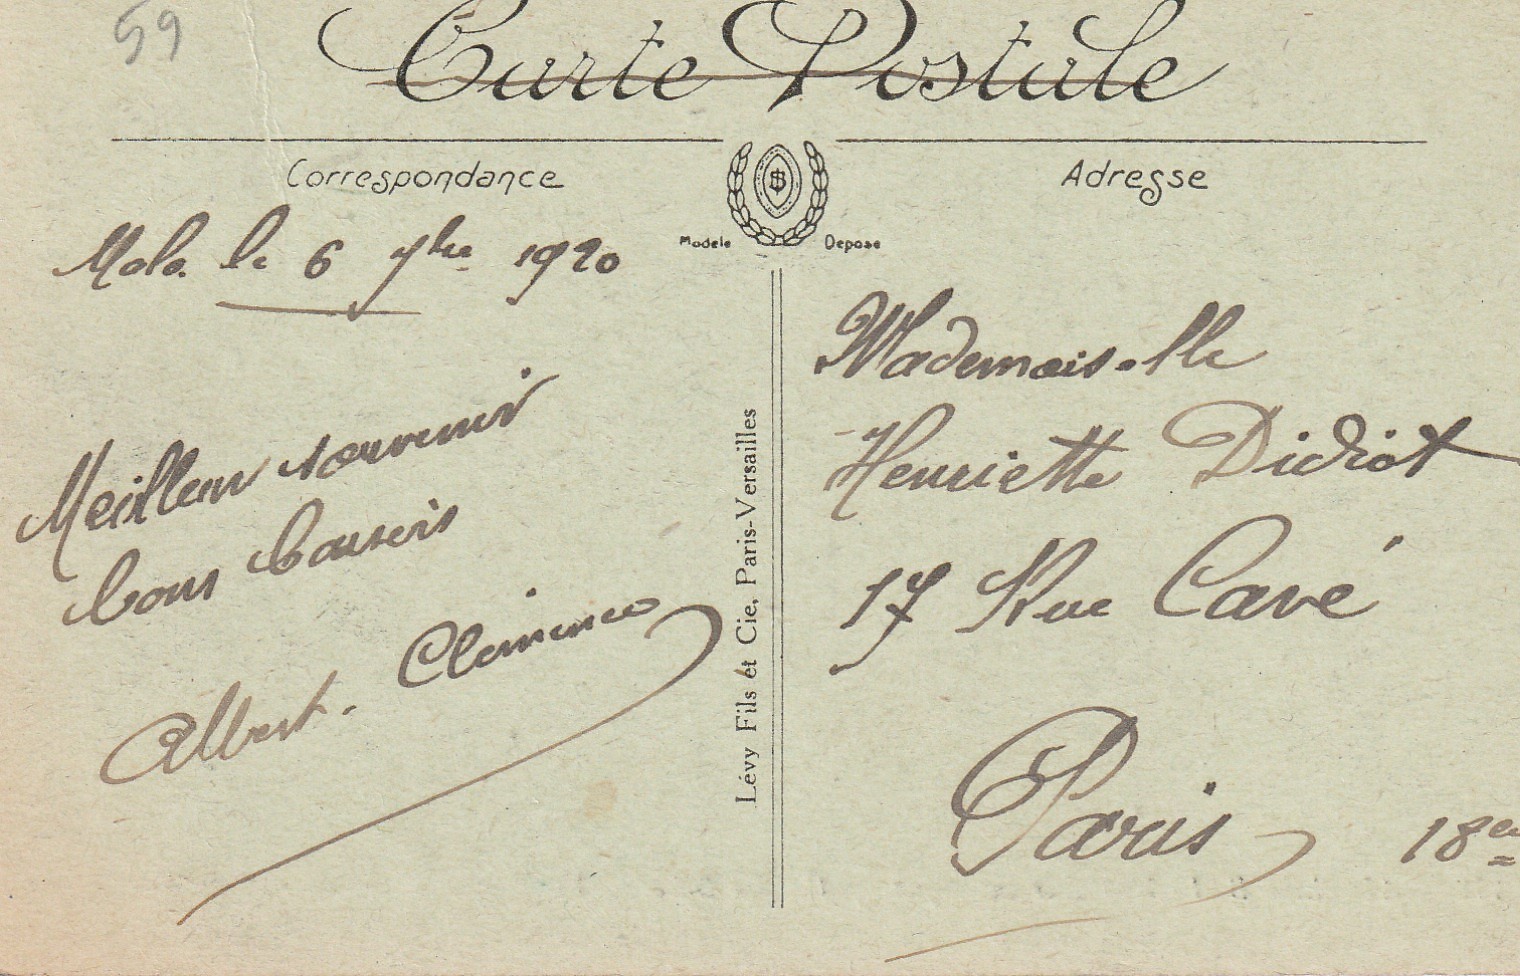 59
Carte Postale
Correspondance
Adresse
Modèle Déposé
Malo le 6 7bre 1920
Meilleur souvenir
bons baisers
Albert. Clémence
Lévy Fils et Cie, Paris-Versailles
Mademoiselle
Henriette Didiot
17 Rue Cavé
Paris 18e